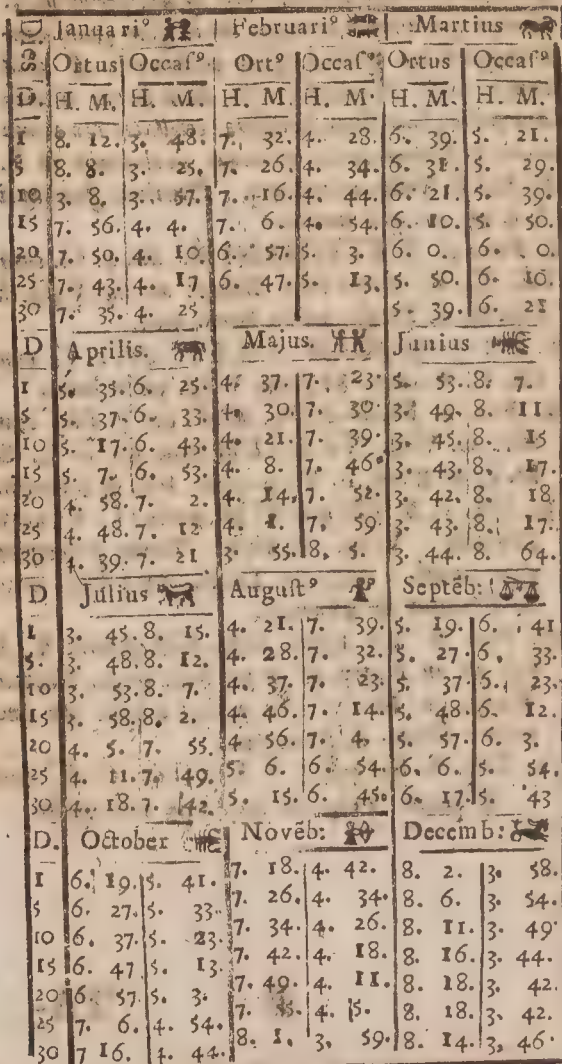 Dies Januari⁹ | Februari⁹ | Martius
Ortus | Occaſ⁹ | Ort⁹ | Occaſ⁹ | Ortus | Occaſ⁹
D. H. M. | H. M. | H. M. | H. M. | H. M. | H. M.
1 8. 12. 3. 48. 7. 32. 4. 28. 6. 39. 5. 21.
5 8. 8. 3. 25. 7. 26. 4. 34. 6. 31. 5. 29.
10 3. 8. 3. 57. 7. 16. 4. 44. 6. 21. 5. 39.
15 7. 56. 4. 4. 7. 6. 4. 54. 6. 10. 5. 50.
20 7. 50. 4. 10. 6. 57. 5. 3. 6. 0. 6. 0.
25 7. 43. 4. 17 6. 47. 5. 13. 5. 50. 6. 10.
30 7. 35. 4. 25 5. 39. 6. 21
D Aprilis. Majus. Junius
1 5. 35. 6. 25. 4. 37. 7. 23. 5. 53. 8. 7.
5 5. 37. 6. 33. 4. 30. 7. 30. 3. 49. 8. 11.
10 5. 17. 6. 43. 4. 21. 7. 39. 3. 45. 8. 15
15 5. 7. 6. 53. 4. 8. 7. 46. 3. 43. 8. 17.
20 4. 58. 7. 2. 4. 14. 7. 52. 3. 42. 8. 18.
25 4. 48. 7. 12 4. 1. 7. 59 3. 43. 8. 17.
30 4. 39. 7. 21 3. 55. 8. 5. 3. 44. 8. 64.
D Julius Auguſt⁹ Septēb:
1 3. 45. 8. 15. 4. 21. 7. 39. 5. 19. 6. 41
5. 3. 48. 8. 12. 4. 28. 7. 32. 5. 27. 6. 33.
10 3. 53. 8. 7. 4. 37. 7. 23. 5. 37. 6. 23.
15 3. 58. 8. 2. 4. 46. 7. 14. 5. 48. 6. 12.
20 4. 5. 7. 55. 4. 56. 7. 4. 5. 57. 6. 3.
25 4. 11. 7. 49. 5. 6. 6. 54. 6. 6. 5. 54.
30 4. 18. 7. 42. 5. 15. 6. 45. 6. 17. 5. 43
D. October Novēb: Decemb:
1 6. 19. 5. 41. 7. 18. 4. 42. 8. 2. 3. 58.
5 6. 27. 5. 33. 7. 26. 4. 34. 8. 6. 3. 54.
10 6. 37. 5. 23. 7. 34. 4. 26. 8. 11. 3. 49
15 6. 47 5. 13. 7. 42. 4. 18. 8. 16. 3. 44.
20 6. 57. 5. 3. 7. 49. 4. 11. 8. 18. 3. 42.
25 7. 6. 4. 54. 7. 55. 4. 5. 8. 18. 3. 42.
30 7 16. 4. 44. 8. 1. 3. 59. 8. 14. 3. 46.